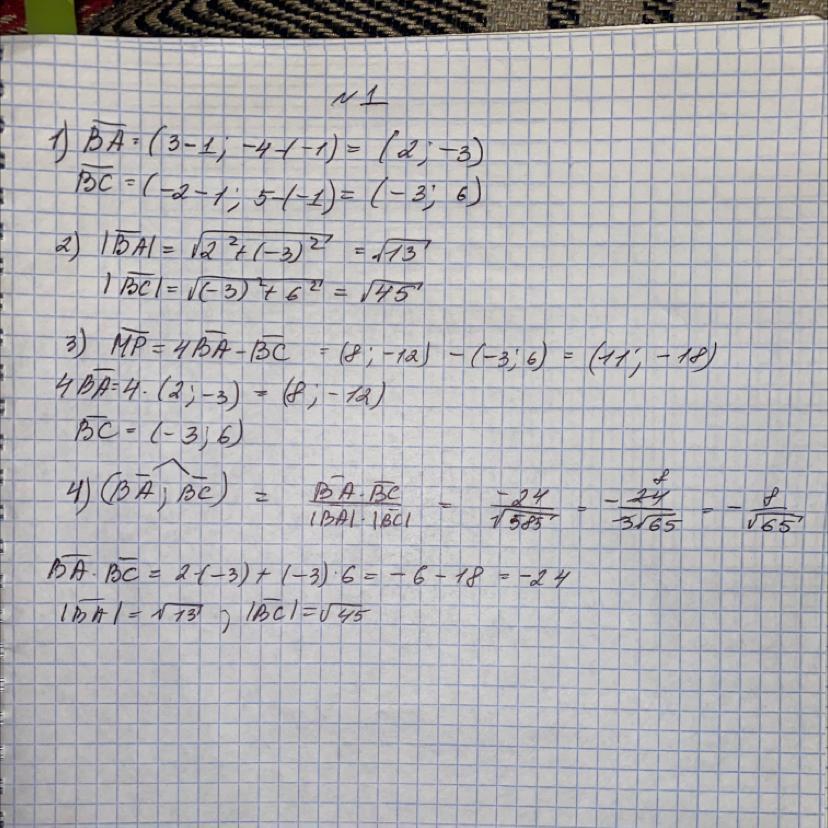 №1
1) BA = (3-1; -4-(-1) = (2; -3)
BC = (-2-1; 5-(-1) = (-3; 6)
2) |BA| = √2²+(-3)² = √13
|BC| = √(-3)²+6² = √45
3) MP = 4BA - BC = (8; -12) - (-3; 6) = (11; -18)
4BA = 4·(2; -3) = (8; -12)
BC = (-3; 6)
4) (BA; BC) = BA·BC / |BA|·|BC| = -24 / √585 = -24 8 / 3√65 = - 8 / √65
BA·BC = 2·(-3) + (-3)·6 = -6 - 18 = -24
|BA| = √13 ; |BC| = √45